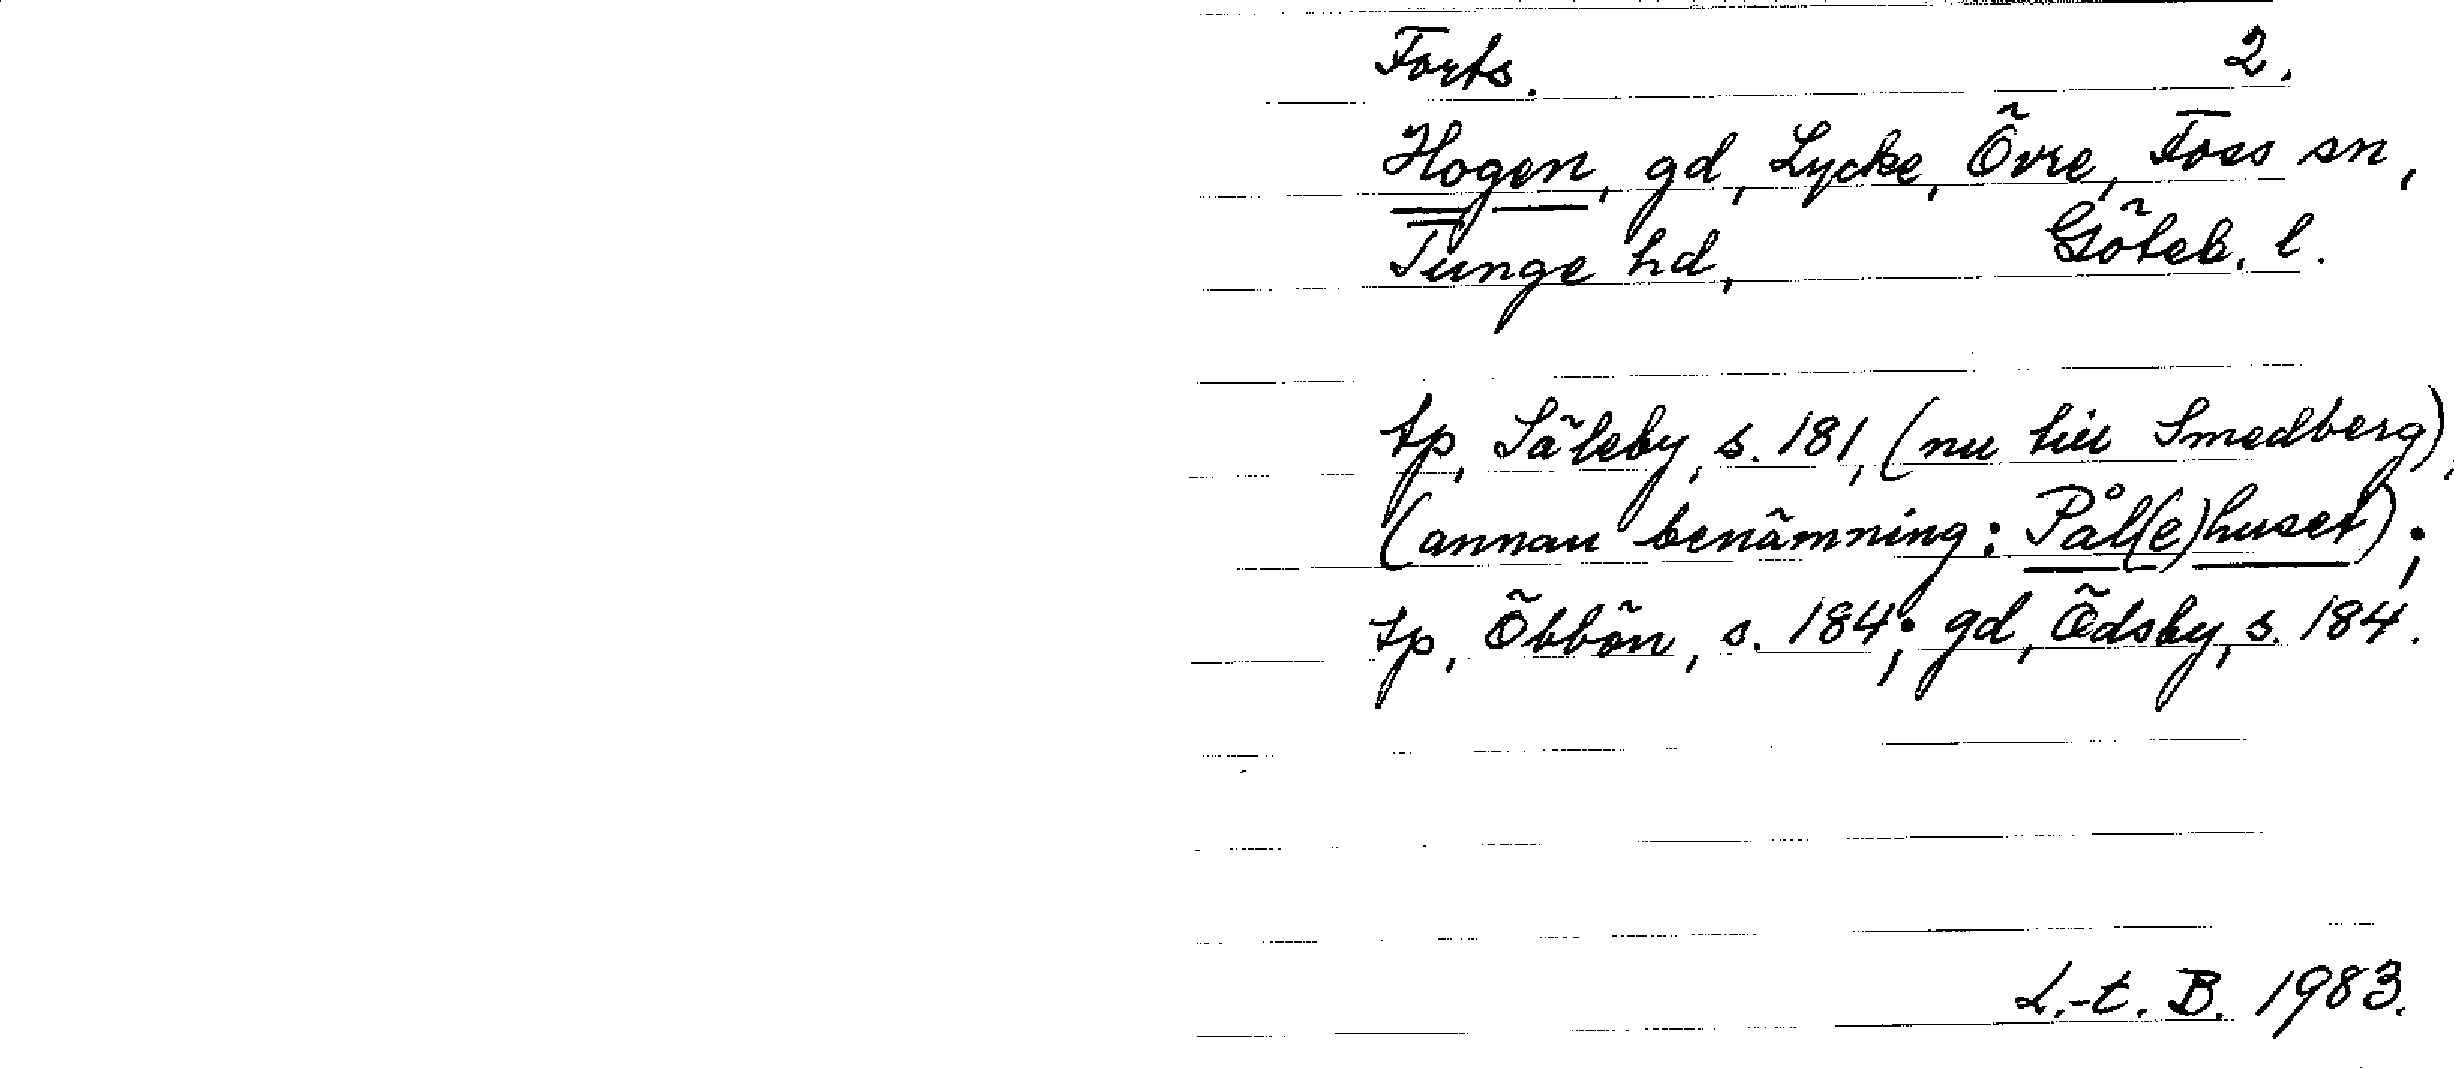 Forts. 2.
Hogen, gd, Lycke, Övre, Foss sn,
Tunge hd, Göteb. l.
tp, Säleby, s. 181, (nu hu Smedberg),
(annan benämning: Pål(e)huset);
tp, Öbbön, s. 184; gd, Ödsby, s. 184.
L.-t. B. 1983.